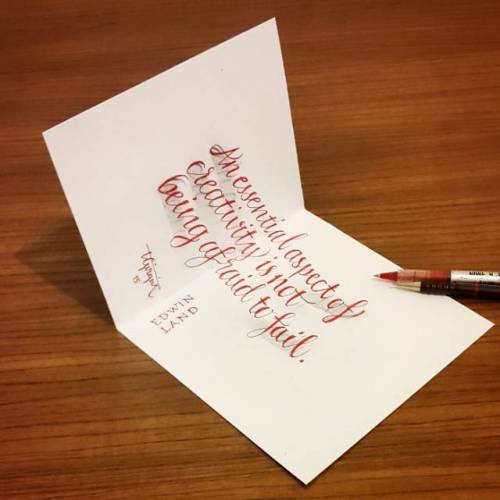 An essential aspect of
creativity is not
being afraid to fail.
EDWIN
LAND